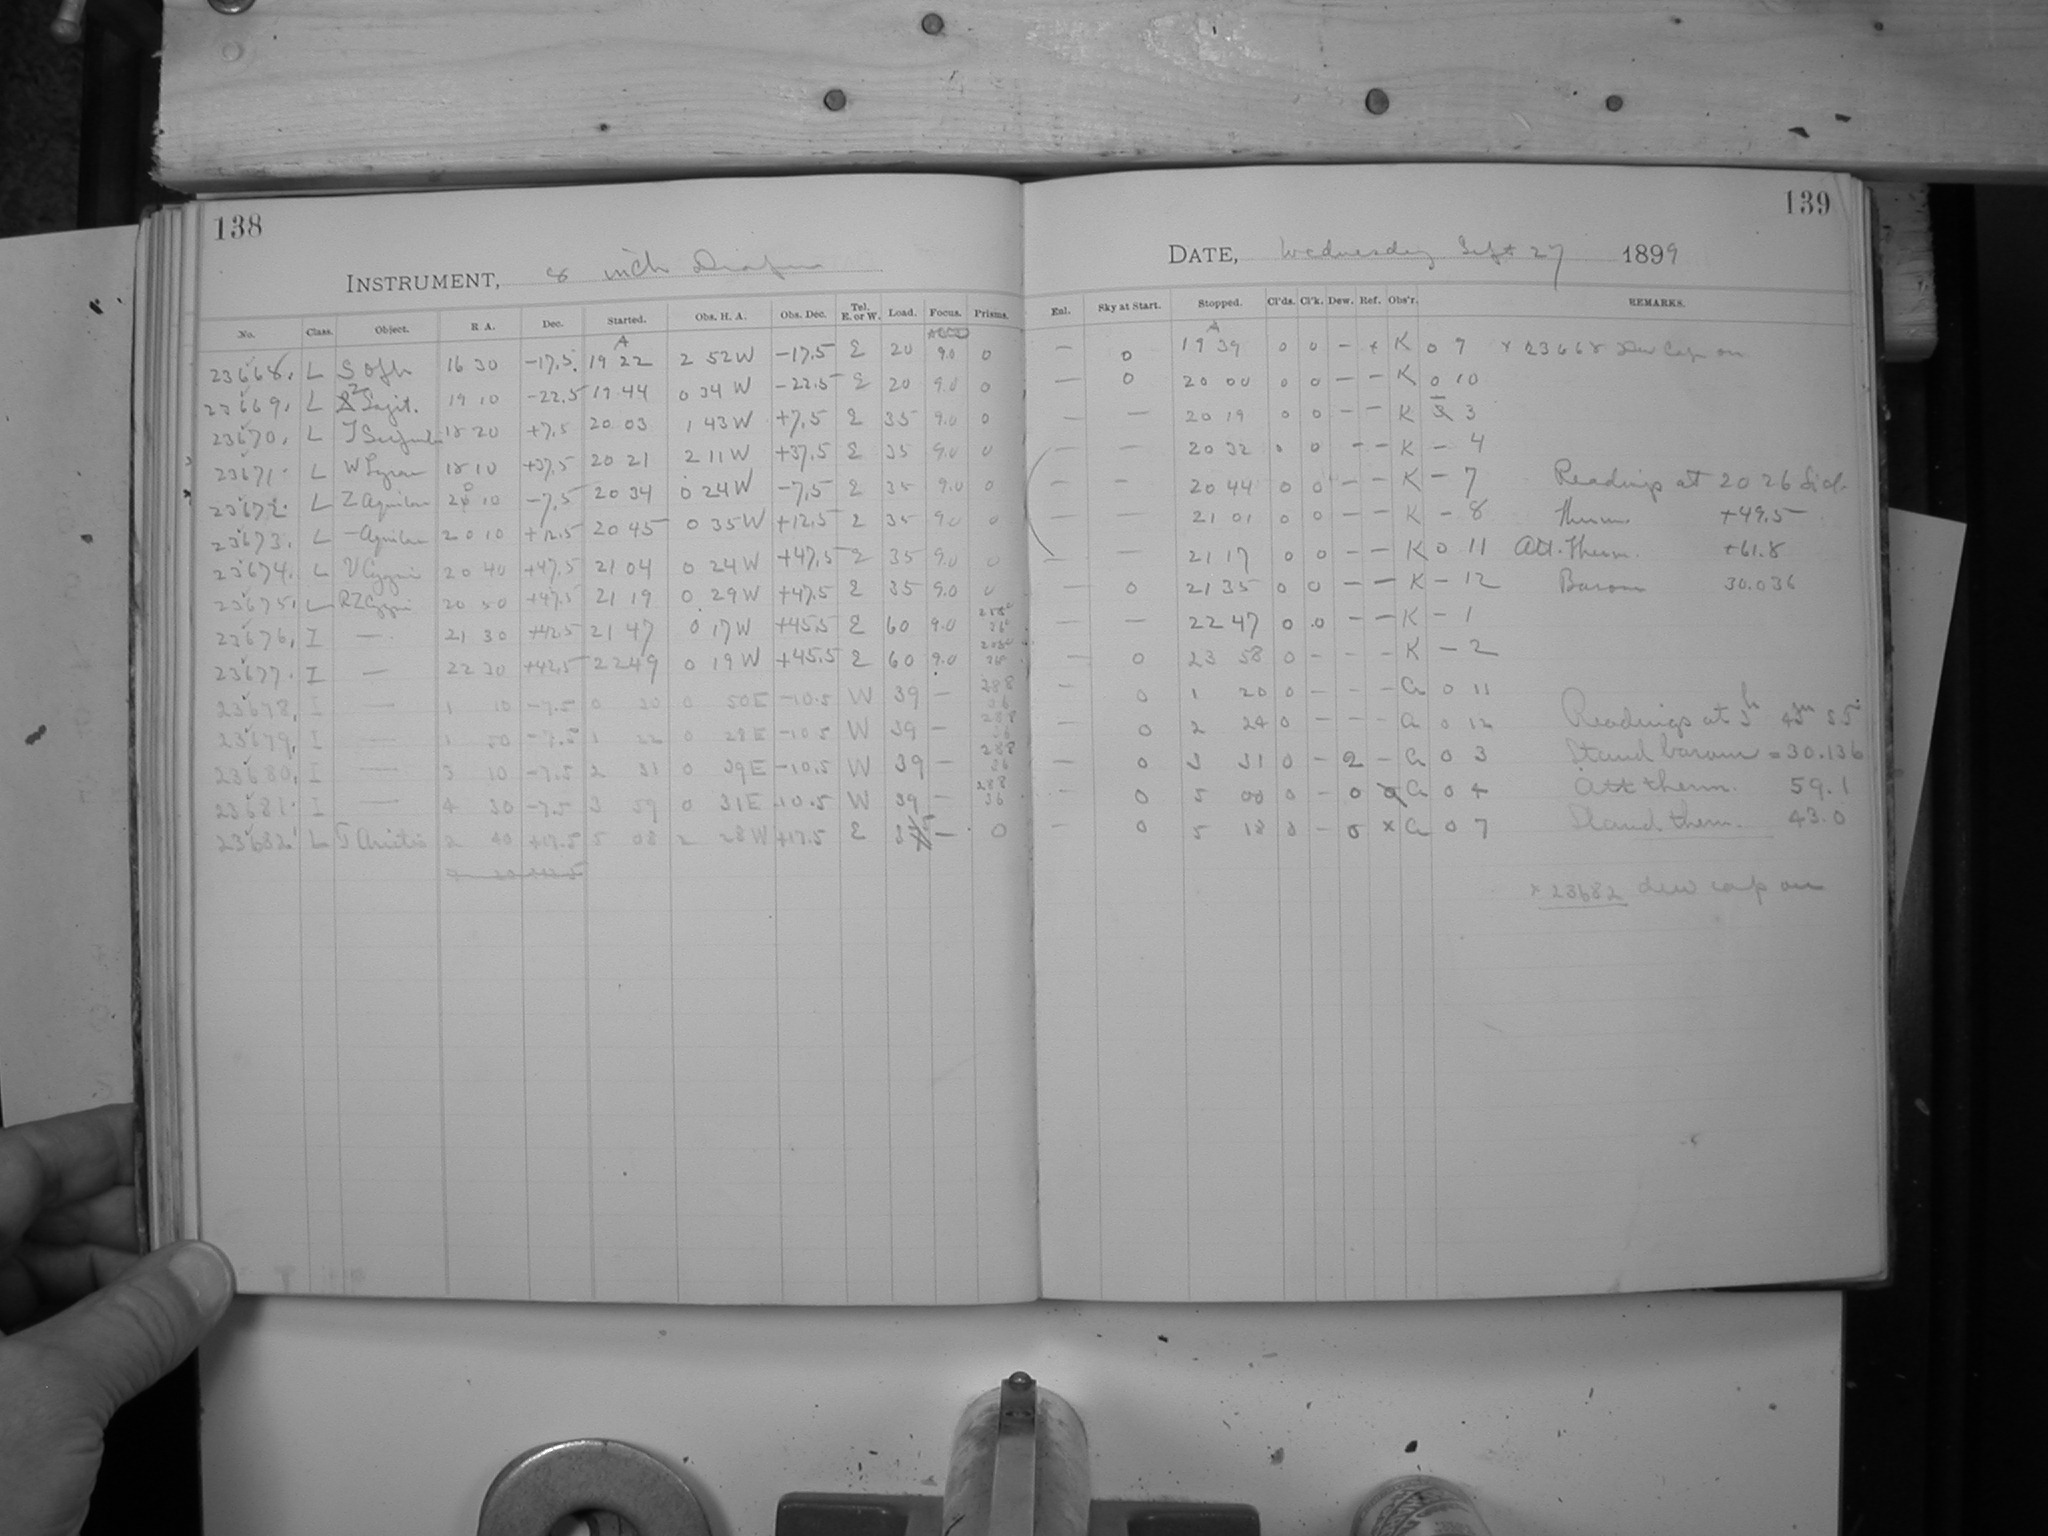 138
INSTRUMENT, 8 inch Draper
No. Class. Object. R A. Dec. Started. Obs. H. A. Obs. Dec. Tel. E. or W. Load. Focus. Prisms.
23668. L S Oph 16 30 -17.5 A 19 22 2 52 W -17.5 E 20 9.0 0
23669. L Z Sagit. 19 10 -22.5 19 44 0 34 W -22.5 E 20 9.0 0
23670. L T 18 20 +7.5 20 03 1 43 W +7.5 E 35 9.0 0
23671. L W Lyrae 18 10 +37.5 20 21 2 11 W +37.5 E 35 9.0 0
23672. L Z Aquilae 20 10 -7.5 20 34 0 24 W -7.5 E 35 9.0 0
23673. L - Aquilae 20 10 +12.5 20 45 0 35 W +12.5 E 35 9.0 0
23674. L V Cygni 20 40 +47.5 21 04 0 24 W +47.5 E 35 9.0 0
23675. L RZ Cygni 20 50 +47.5 21 19 0 29 W +47.5 E 35 9.0 0
23676. I — 21 30 +42.5 21 47 0 17 W +45.5 E 60 9.0
23677. I — 22 30 +42.5 22 49 0 19 W +45.5 E 60 9.0
23678. I — 1 10 -7.5 0 20 0 50 E -10.5 W 39 — 288 36
23679. I — 1 50 -7.5 1 22 0 28 E -10.5 W 39 — 288 36
23680. I — 3 10 -7.5 2 31 0 39 E -10.5 W 39 — 288 36
23681. I — 4 30 -7.5 3 59 0 31 E -10.5 W 39 — 288 36
23682. L T Arietis 2 40 +17.5 5 08 2 28 W +17.5 E — 0
139
DATE, Wednesday Sept 27 1899
Enl. Sky at Start. Stopped. Cl'ds. Cl'k. Dew. Ref. Obs'r. REMARKS.
— 0 A 19 39 0 0 - x K 0 9 x 23668 Dew Cap on
— 0 20 00 0 0 — — K 0 10
— — 20 19 0 0 — — K 3
— — 20 32 0 0 — — K — 4
— — 20 44 0 0 — — K — 7 Readings at 20 26 Sid.
— — 21 01 0 0 — — K — 8 Therm +49.5
— — 21 17 0 0 — — K 0 11 Att. Therm. +61.8
— 0 21 35 0 0 — — K — 12 Barom 30.036
— — 22 47 0 0 — — K — 1
— 0 23 58 0 - - - K — 2
— 0 1 20 0 - - - G 0 11
0 2 24 0 - - - G 0 12 Readings at 3h 45m 55s
— 0 3 31 0 - 2 - G 0 3 Stand barom = 30.136
0 5 00 0 - 0 G 0 4 Att therm. 59.1
— 0 5 18 0 - 0 x G 0 7 Stand therm. 43.0
x 23682 dew cap on